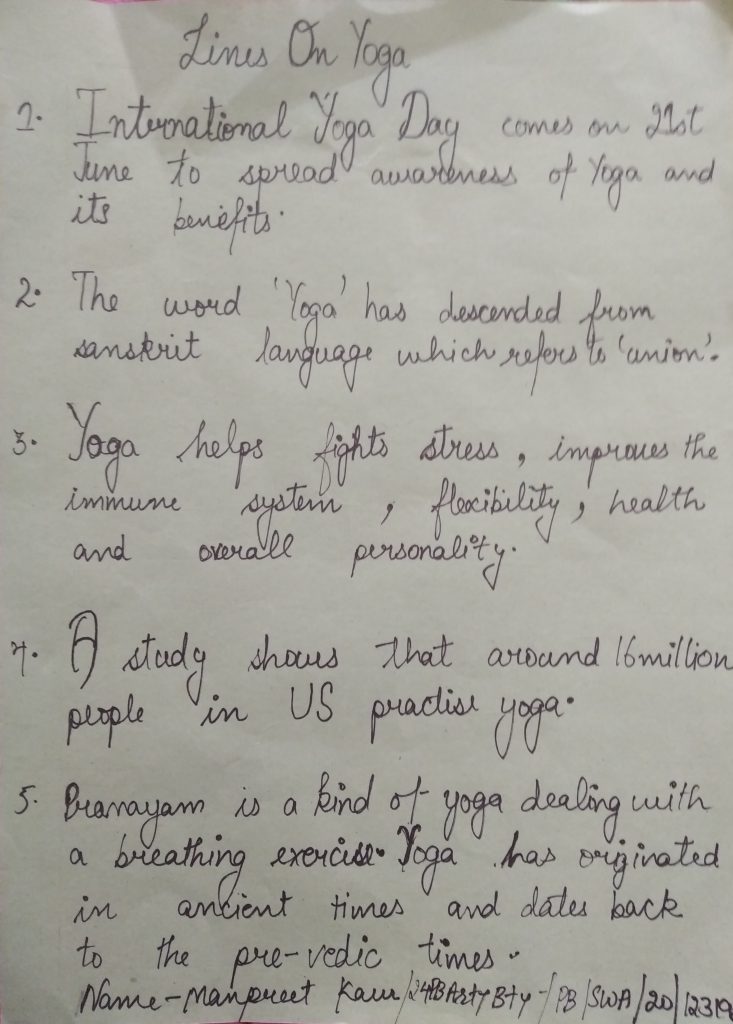 Lines On Yoga
1. International Yoga Day comes on 21st
June to spread awareness of Yoga and
its benefits.
2. The word 'Yoga' has descended from
sanskrit language which refers to 'union'.
3. Yoga helps fights stress, improves the
immune system, flexibility, health
and overall personality.
4. A study shows that around 16 million
people in US practise yoga.
5. Pranayam is a kind of yoga dealing with
a breathing exercise. Yoga has originated
in ancient times and dates back
to the pre-vedic times.
Name-Manpreet Kaur/24PB Arty Bty-/PB/SWA/20/12319